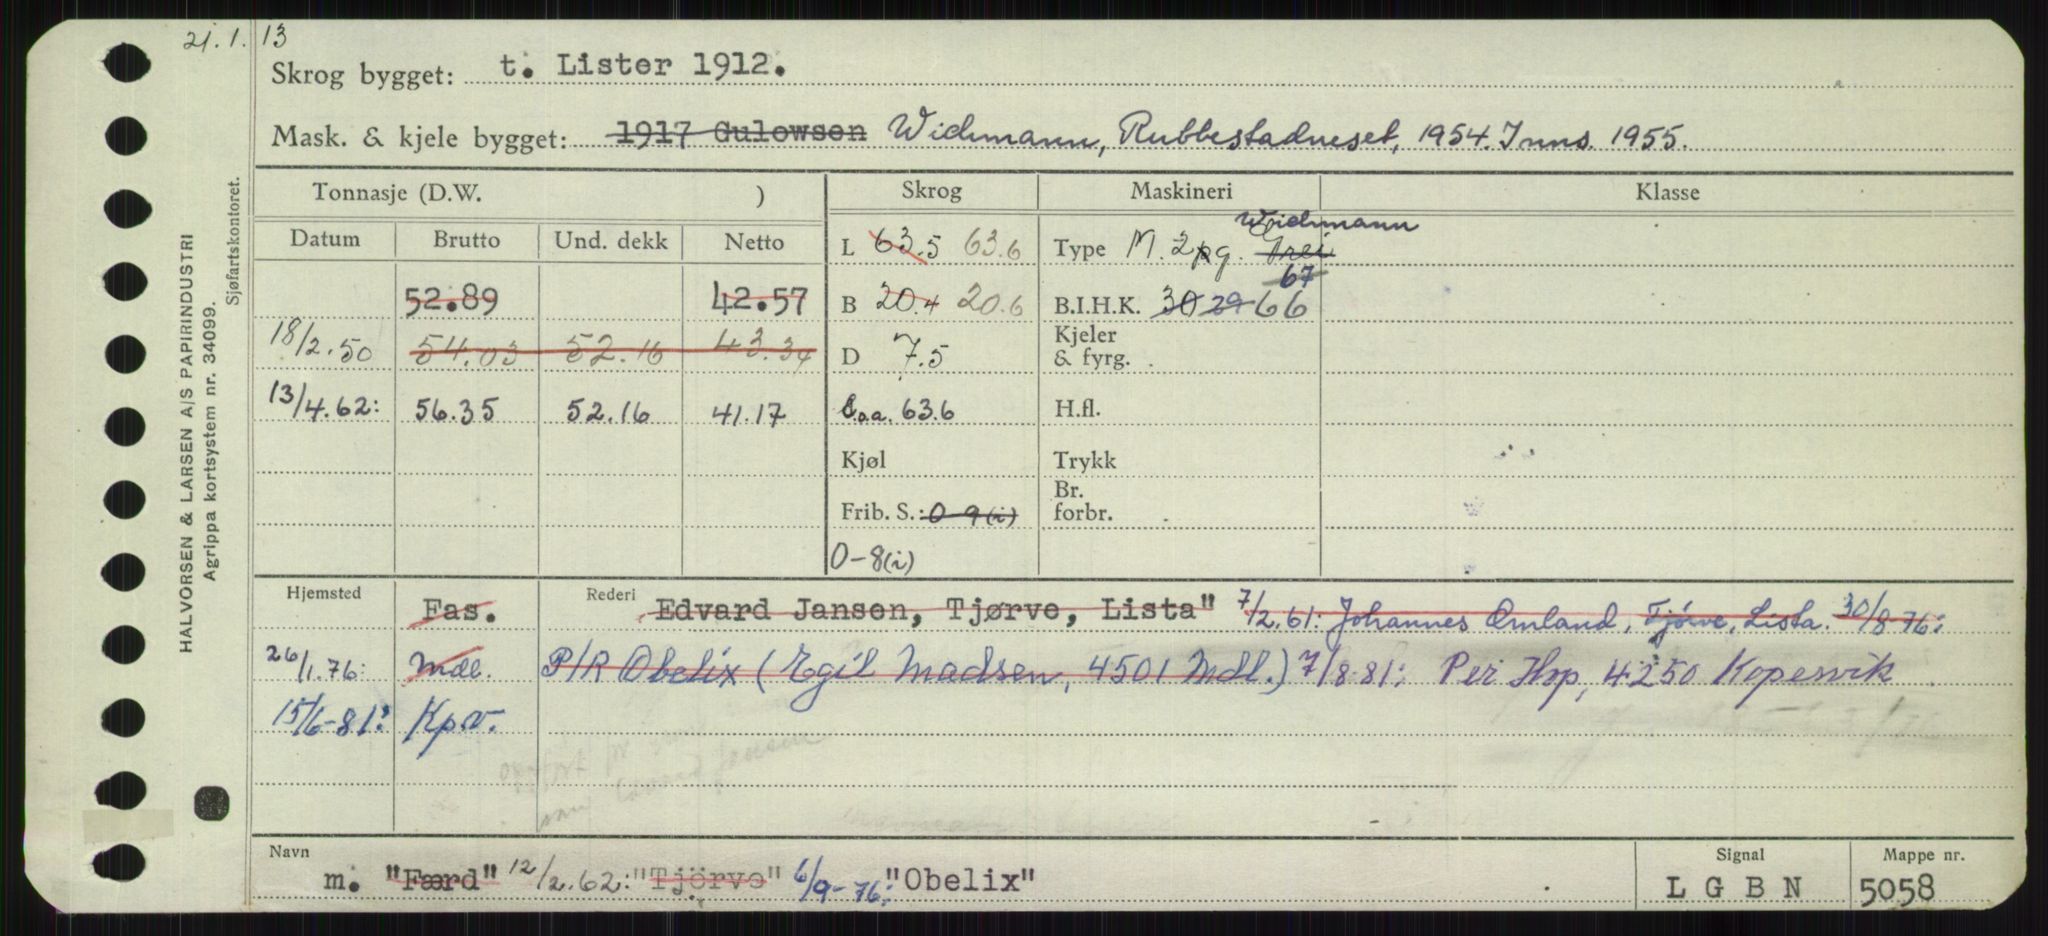 21.1.13
Skrog bygget: t. Lister 1912.
Mask. & kjele bygget: 1917 Gulowsen Wichmann, Rubbestadneset, 1954. Inns. 1955.
Tonnasje (D.W. ) Skrog Maskineri Klasse
Datum Brutto Und. dekk Netto L 63.5 63.6 Type M. 2 pg. Wichmann
52.89 42.57 B 20.4 20.6 B.I.H.K. 30 29 67 66
18/2.50 54.03 52.16 43.34 D 7.5 Kjeler & fyrg.
13/4.62: 56.35 52.16 41.17 L.o.a. 63.6 H.fl.
Kjøl Trykk
Frib. S.: 0-9(i) Br. forbr.
0-8(i)
Hjemsted Fas. Rederi Edvard Jansen, Tjørve, Lista" 7/2.61: Johannes Omland, Tjörve, Lista. 30/8-76:
26/1.76: Mdl. P/R Obelix (Egil Madsen, 4501 Mdl.) 7/8-81: Per Hop, 4250 Kopervik
15/6-81: Kpv.
Navn m. "Færd" 12/2.62: "Tjörve" 6/9-76: "Obelix" Signal LGBN Mappe nr. 5058
HALVORSEN & LARSEN A/S PAPIRINDUSTRI
Agrippa kortsystem nr. 34099.
Sjøfartskontoret.